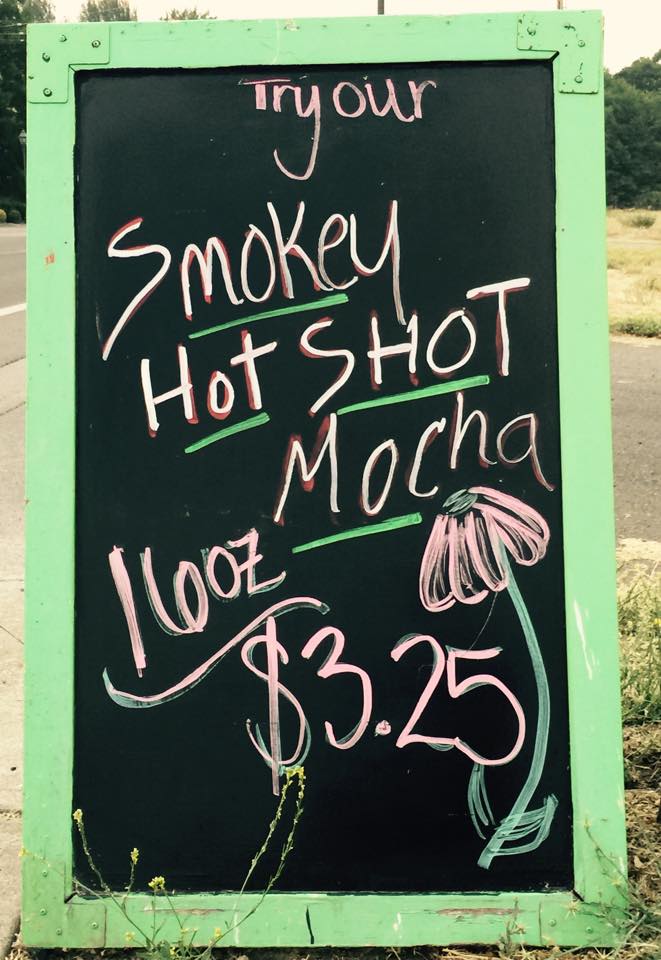 Try our
Smokey
Hot SHOT
Mocha
16oz
$3.25